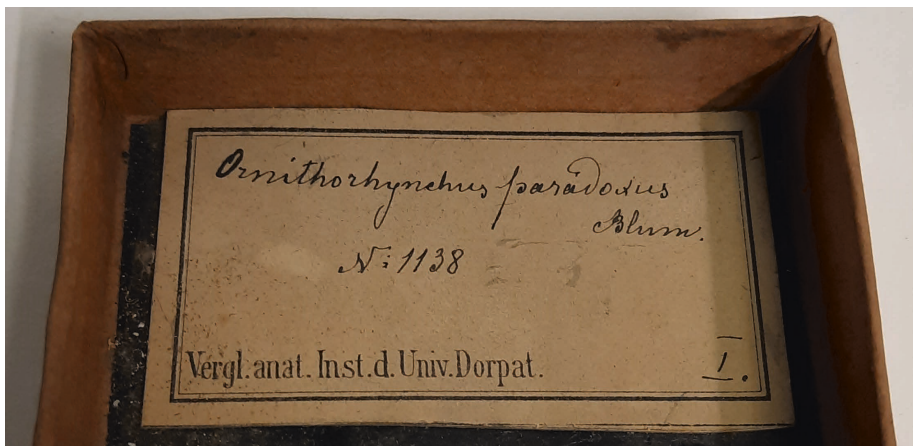 Ornithorhynchus paradoxus
Blum.
N: 1138
Vergl. anat. Inst. d. Univ. Dorpat.
I.